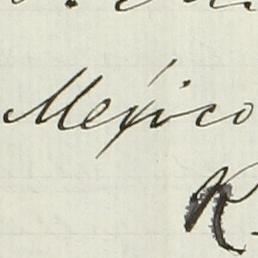 México
R.